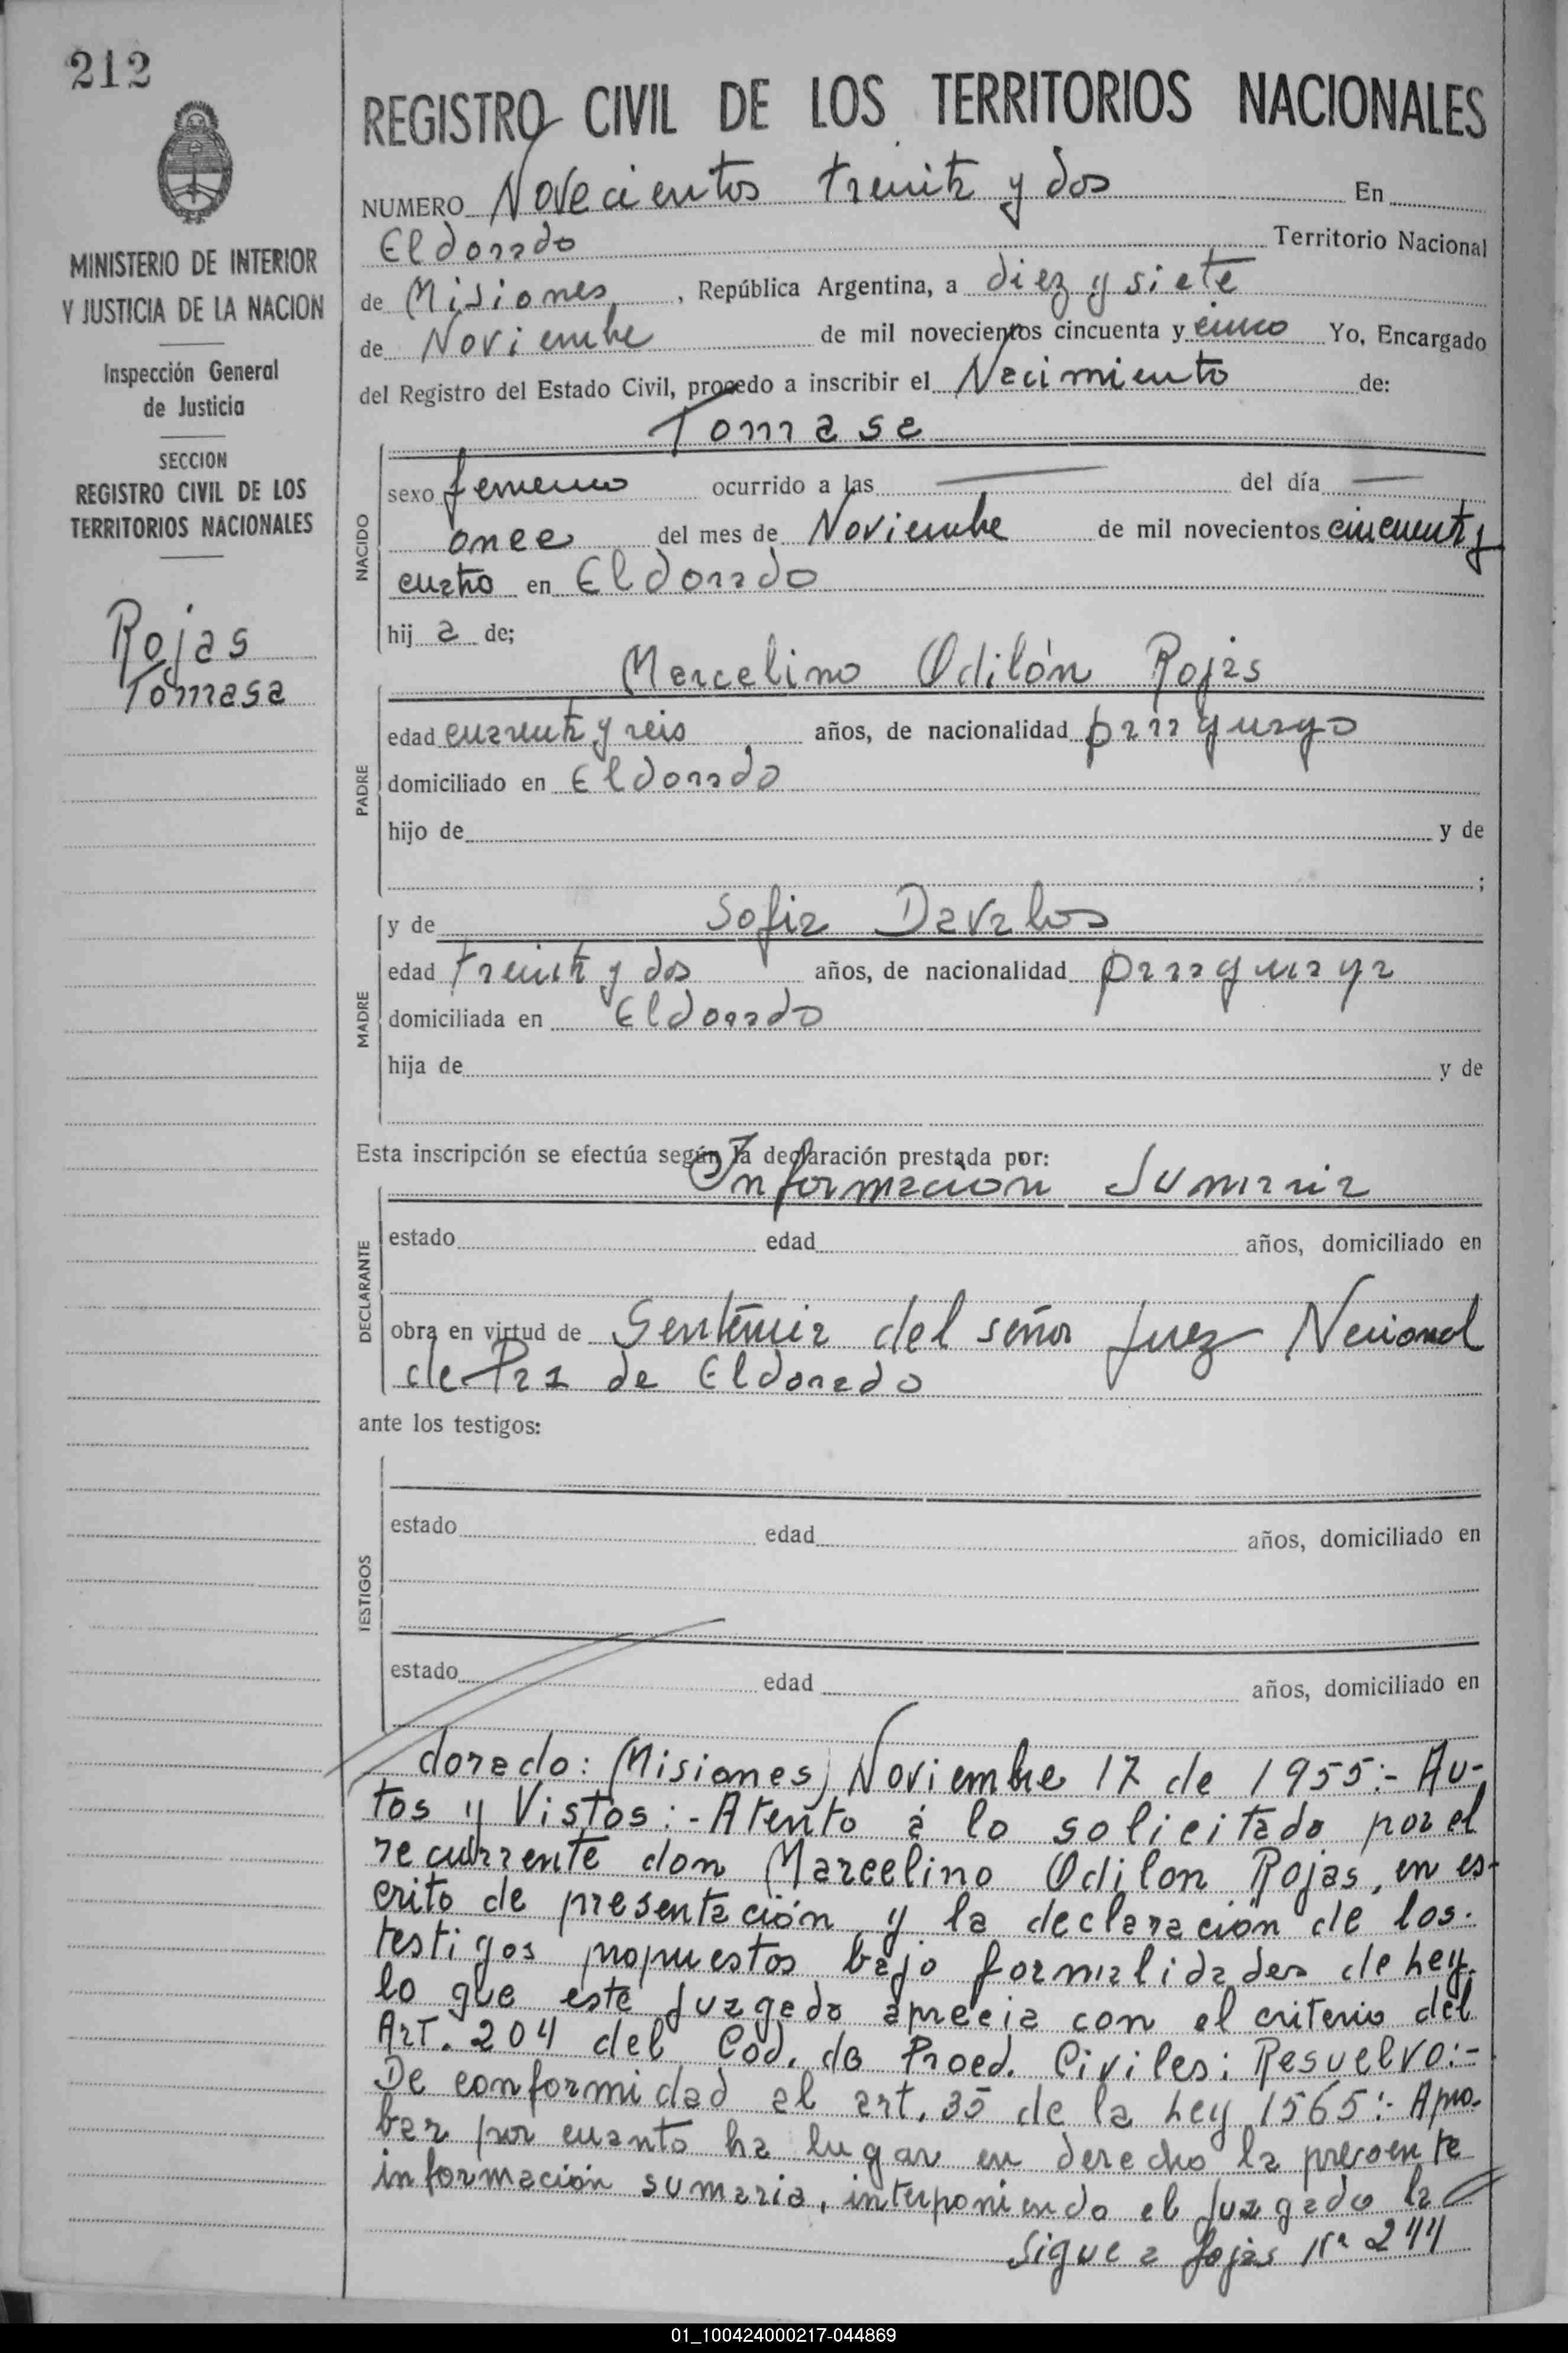 212
MINISTERIO DE INTERIOR
Y JUSTICIA DE LA NACION
Inspección General
de Justicia
SECCION
REGISTRO CIVIL DE LOS
TERRITORIOS NACIONALES
Rojas
Tomasa
REGISTRO CIVIL DE LOS TERRITORIOS NACIONALES
NUMERO Novecientos treinta y dos En
Eldorado Territorio Nacional
de Misiones, República Argentina, a diez y siete
de Noviembre de mil novecientos cincuenta y cinco Yo, Encargado
del Registro del Estado Civil, procedo a inscribir el Nacimiento de:
Tomasa
NACIDO
sexo femenino ocurrido a las — del día —
once del mes de Noviembre de mil novecientos cincuenta y
cuatro en Eldorado
hij a de;
Marcelino Odilón Rojas
PADRE
edad cuarenta y seis años, de nacionalidad paraguayo
domiciliado en Eldorado
hijo de y de
;
MADRE
y de Sofia Davalos
edad treinta y dos años, de nacionalidad paraguaya
domiciliada en Eldorado
hija de y de
Esta inscripción se efectúa según la declaración prestada por:
Información Sumaria
DECLARANTE
estado edad años, domiciliado en
obra en virtud de Sentencia del señor Juez Nacional
de Paz de Eldorado
ante los testigos:
TESTIGOS
estado edad años, domiciliado en
estado edad años, domiciliado en
dorado: (Misiones) Noviembre 17 de 1955:- Au-
tos y Vistos:- Atento á lo solicitado por el
recurrente don Marcelino Odilon Rojas, en es-
crito de presentación y la declaración de los
testigos propuestos bajo formalidades de Ley,
lo que este Juzgado aprecia con el criterio del
Art. 204 del Cod. de Proed. Civiles; Resuelvo:-
De conformidad al art. 35 de la Ley 1565:- Apro-
bar por cuanto ha lugar en derecho la presente
información sumaria, interponiendo el Juzgado la
Sigue a fojas Nº 244
01_100424000217-044869